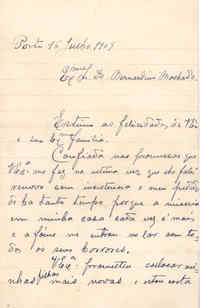 Porto 16 Julho 1907
Exmo Sr. Dr. Bernardino Machado.
Estimo as felicidades de VExa
e sua Exa Familia.
Confiada nas promessas que
VExa me fez na ultima vez que lhe falei
renovo sem insistencia o meu pedido
de ha tanto tempo porque a miseria
em minha casa cada vez é mais
e a fome me entrou no lar com to-
dos os seus horrores.
VExa prometteu collocar mi-
nhas filhas mais novas, e